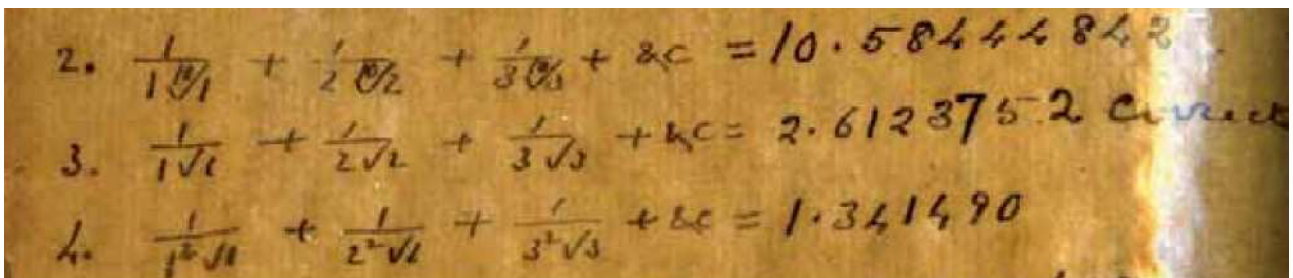 2. 1/(1 ¹⁰√1) + 1/(2 ¹⁰√2) + 1/(3 ¹⁰√3) + &c = 10.58444842
3. 1/(1√1) + 1/(2√2) + 1/(3√3) + &c = 2.6123752 Correct
4. 1/(1²√1) + 1/(2²√2) + 1/(3²√3) + &c = 1.341490